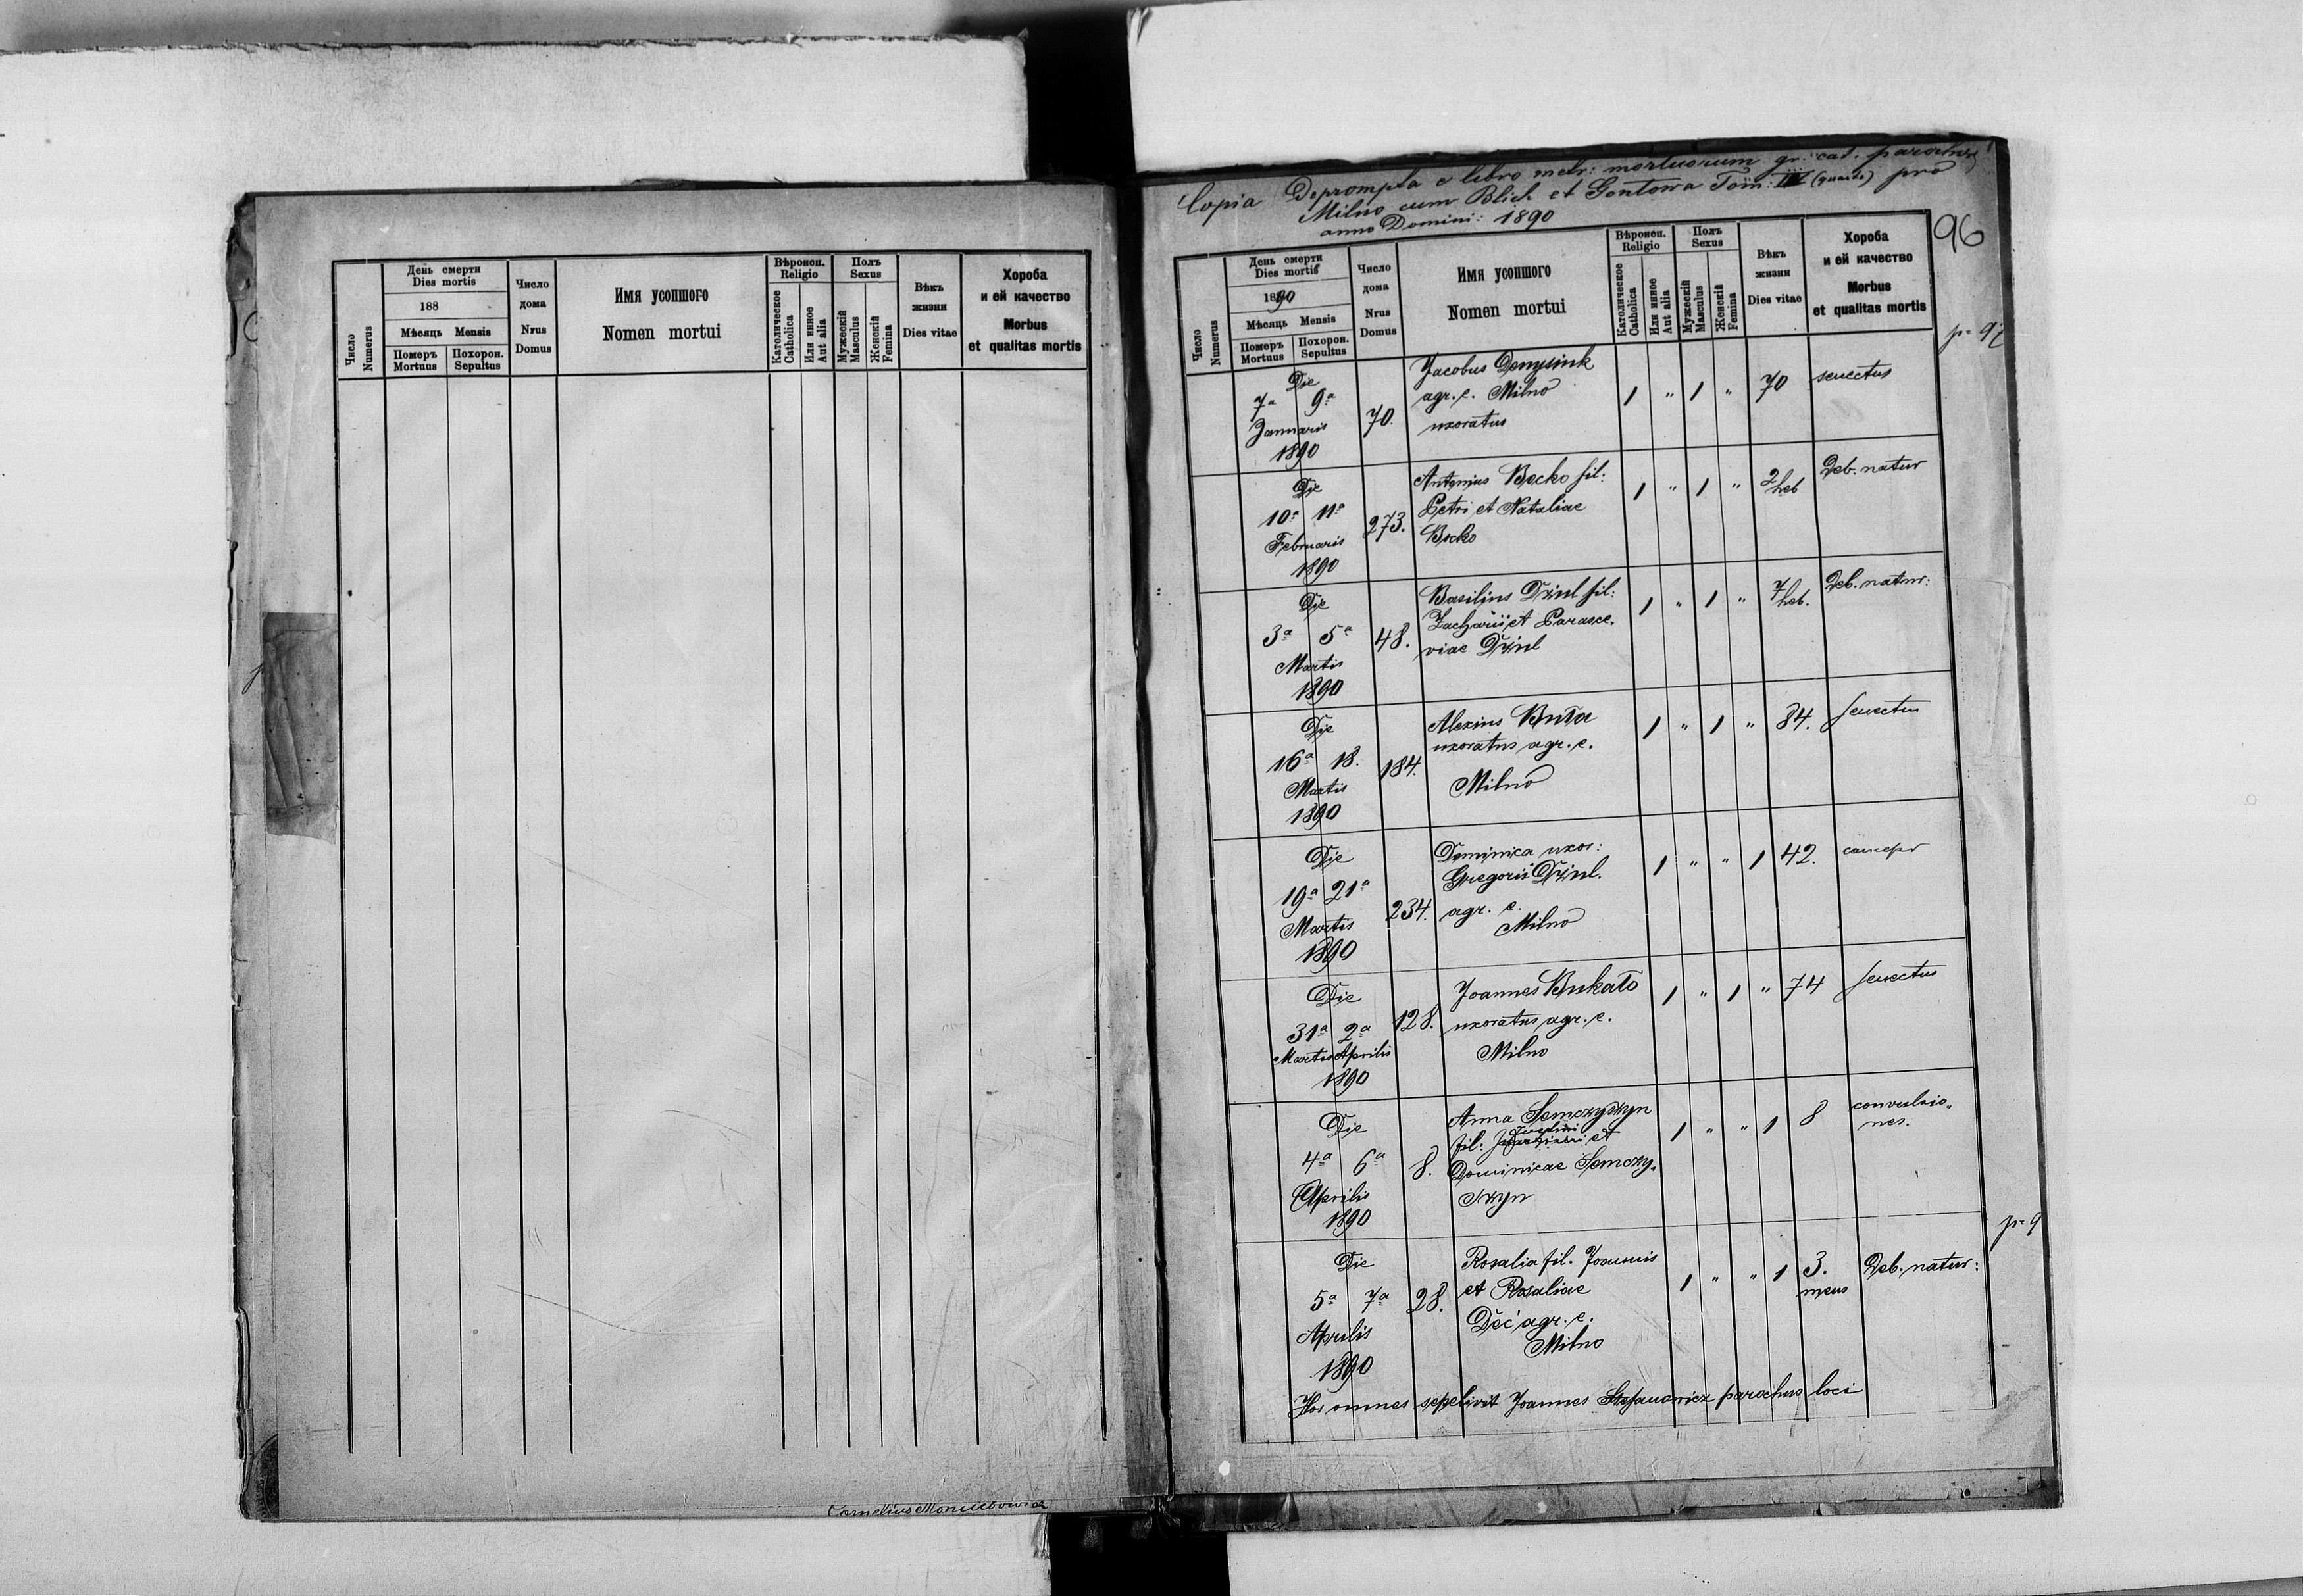 Число
Numerus
День смерти
Dies mortis
188
Мѣсяць Mensis
Померъ
Mortuus
Похорон.
Sepultus
Число
дома
Nrus
Domus
Имя усопшого
Nomen mortui
Вѣроисп.
Religio
Католическое
Catholica
Или инное
Aut alia
Полъ
Sexus
Мужескій
Masculus
Женскій
Femina
Вѣкъ
жизни
Dies vitae
Хороба
и ей качество
Morbus
et qualitas mortis
Cornelius
Copia Deprompta e libro metr: mortuorum gr. cat. parochiae
Milno cum Blich et Gontowa Tom: III pro
anno Domini: 1890
96
Число
Numerus
День смерти
Dies mortis
1890
Мѣсяць Mensis
Померъ
Mortuus
Похорон.
Sepultus
Число
дома
Nrus
Domus
Имя усопшого
Nomen mortui
Вѣроисп.
Religio
Католическое
Catholica
Или инное
Aut alia
Полъ
Sexus
Мужескій
Masculus
Женскій
Femina
Вѣкъ
жизни
Dies vitae
Хороба
и ей качество
Morbus
et qualitas mortis
p= 97
Die
7a 9a
Januaris
1890
70.
Jacobus Denysiuk
agr. c. Milno
uxoratus
1 " 1 " 70 senectus
Die
10a 11a
Februaris
1890
273.
Antonius Becko fil:
Petri et Nataliae
Becko
1 " 1 " 2 heb Deb. natur
Die
3a 5a
Martis
1890
48.
Basilius Dziul fil:
Zacharii et Parasce„
viae Dziul
1 " 1 " 7 heb. Deb. natur:
Die
16a 18.
Martis
1890
184.
Alexius Buta
uxoratus agr. c.
Milno
1 " 1 " 84. senectus
Die
19a 21a
Martis
1890
234.
Dominica uxor:
Gregorii Dziul.
agr. c.
Milno
1 " " 1 42.
Die
31a 2a
Martis Aprilis
1890
128.
Joannes Bukato
uxoratus agr. c.
Milno
1 " 1 " 74 senectus
Die
4a 6a
Aprilis
1890
8.
Anna Semczyszyn
fil: et
Dominicae Semczy„
szyn
1 " " 1 8 convulsio„
nes.
Die
5a 7a
Aprilis
1890
28.
Rosalia fil. Joannis
et Rosaliae
Deć agr. c.
Milno
1 " " 1 3. mens Deb. natur:
p= 9
Hos omnes sepelivit Joannes Stefanowicz parochus loci